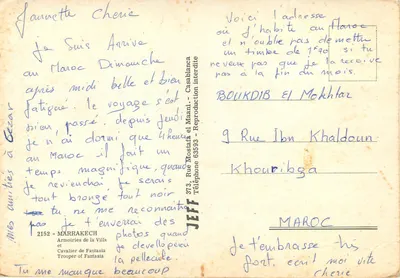 Jeannette Cherie
Je Suis Arrivé
au Maroc Dimanche
après midi belle et bien
fatigué. le voyage s'est
bien passé. depuis jeudi
Je n'ai dormi que 4 heures
au Maroc il fait un
temps magnifique, quand
Je reviendrai Je serais
tout bronzé tout noir
tu ne me reconnaitra
pas Je t'enverai des
photos quand
Je développerai
la pellicule.
Tu me manque beaucoup
mes amitiés à Oscar
2152 - MARRAKECH
Armoiries de la Ville
et
Cavalier de Fantasia
Trouper of Fantasia
JEFF 373, Rue Mostafa el Maani - Casablanca
Téléphone 63592 - Reproduction interdite
Voici l'adresse
où J'habite au Maroc
et n'oublie pas de mettre
un timbre de 1F40 si tu
ne veux pas que Je la reçoive
pas à la fin du mois.
BOUKDIB El Mokhtar
9 Rue Ibn Khaldoun
Khouribga
MAROC
Je t'embrasse très
fort, écrit moi vite
cherie